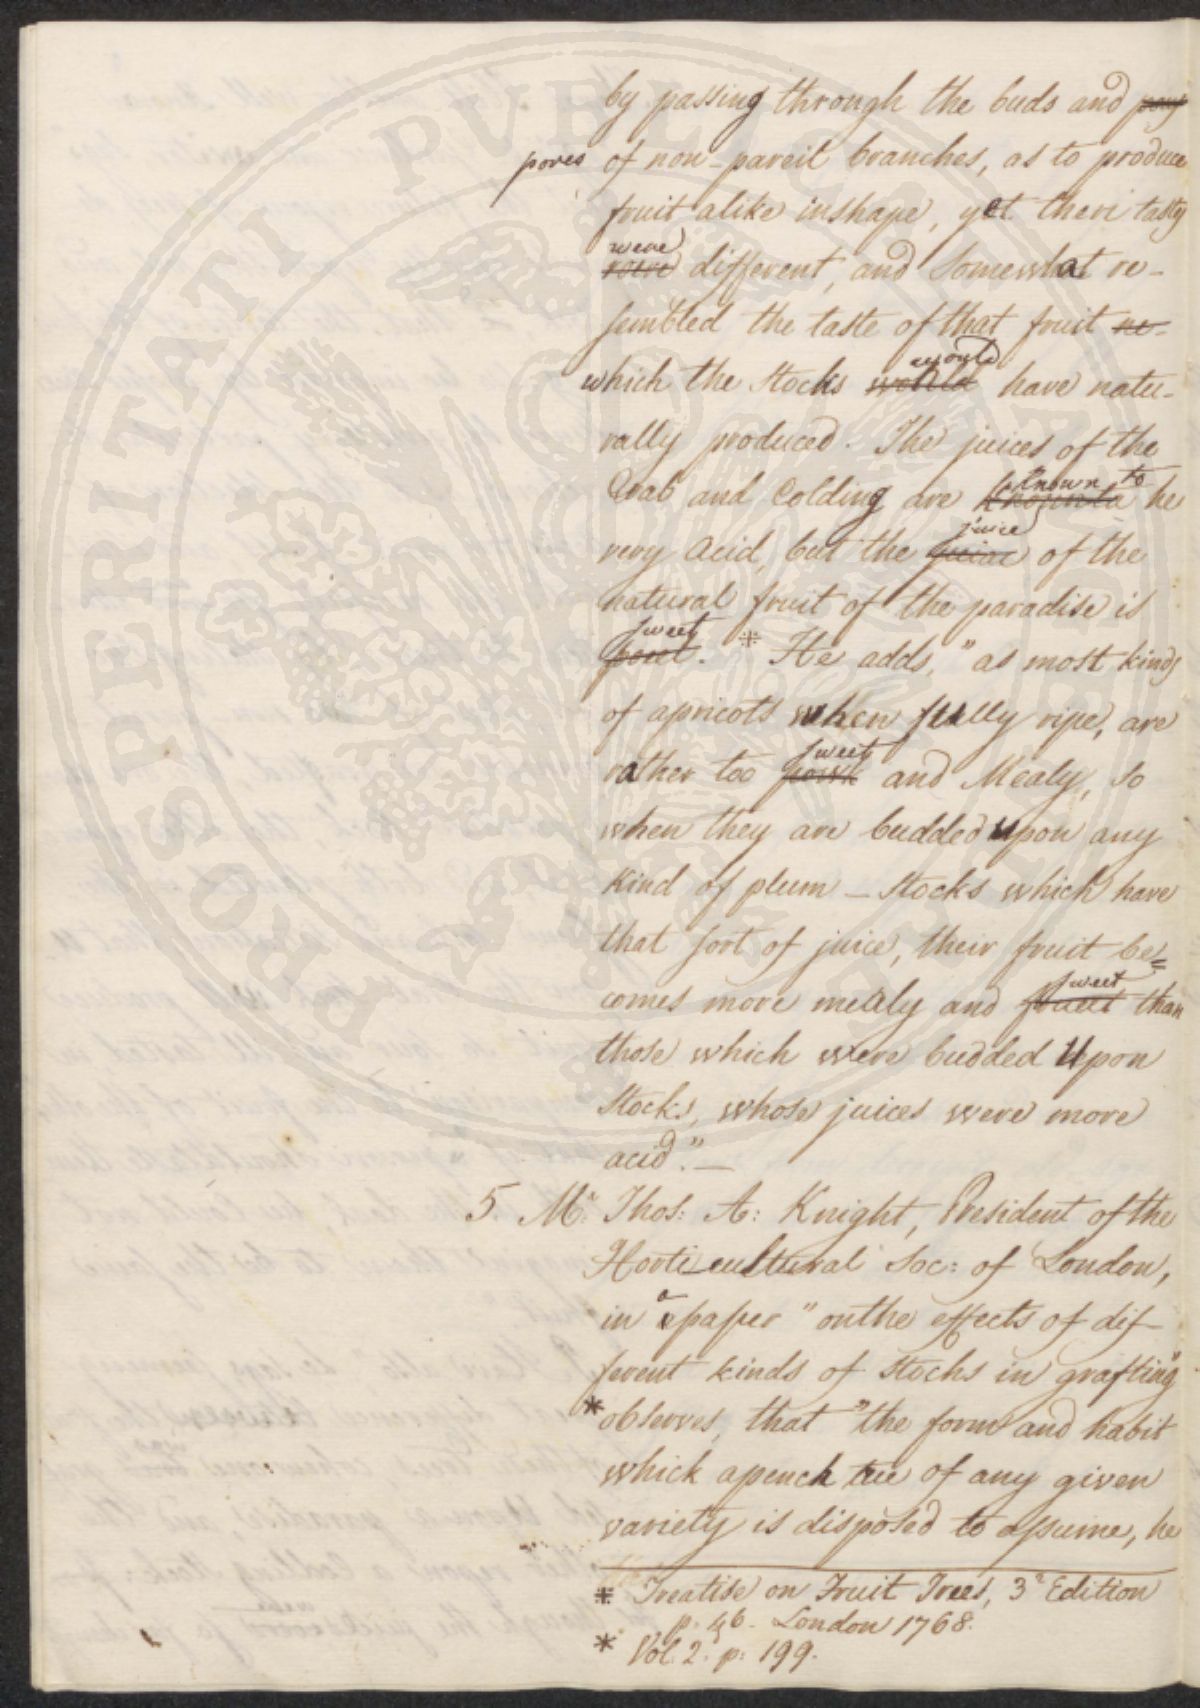 by passing through the buds and
pores of non-pareil branches, as to produce
fruit alike inshape, yet theri tasty
were
different, and Somewhat re-
sembled the taste of that fruit ne-
would
which the Stocks would have natu-
rally produced. The juices of the
known to
Crab and Colding are knownto he
juice
very acid, but the juice of the
natural fruit of the paradise is
sweet
. * He adds, "as most kinds
of apricots when fully ripe, are
sweet
rather too and Mealy, So
when they are budded upon any
Kind of plum - Stocks which have
that sort of juice, their fruit be=
sweet
comes more mealy and sweet than
those which were budded Upon
Stocks, whose juices were more
acid." —
5. Mr. Thos: A: Knight, President of the
Horti-cultural Soc: of London,
in a paper "onthe effects of dif-
ferent kinds of Stocks in grafting"
*observes, that "the form and habit
which apeach tree of any given
variety is disposed to assume, he
* Treatise on Fruit Trees, 3d Edition
p. 46. London 1768.
* Vol. 2. p: 199.
PROSPERITATI PUBLICAE